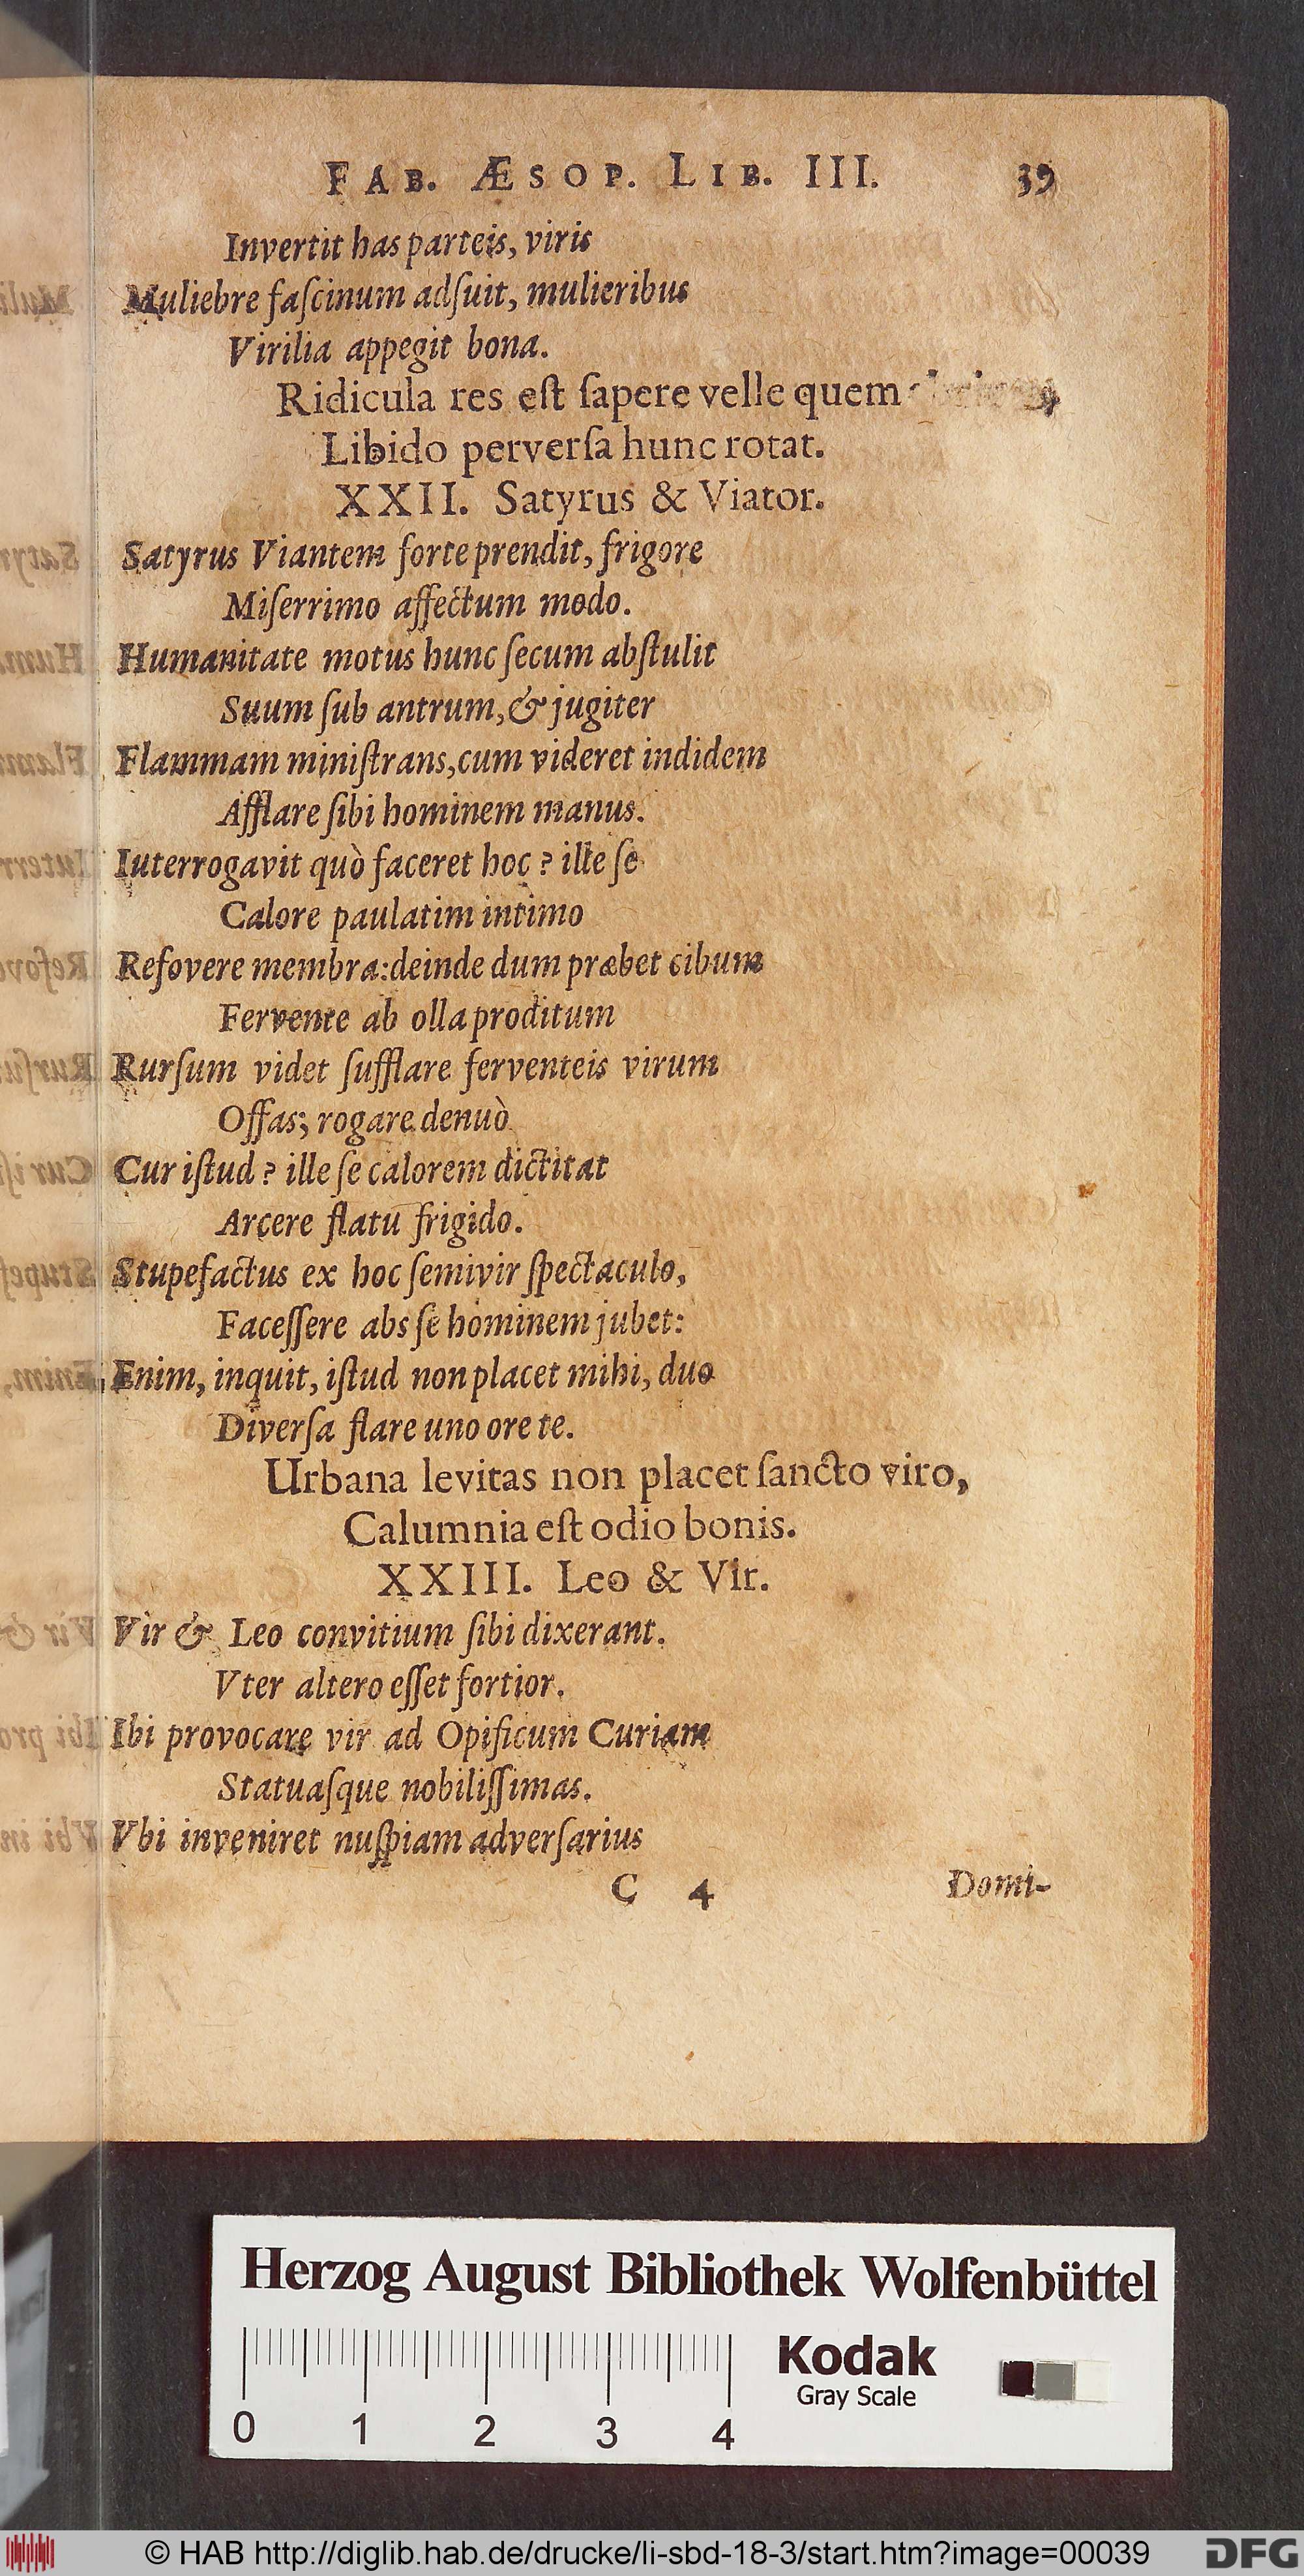 FAB. ÆSOP. LIB. III. 39
Invertit has parteis, viris
Muliebre faſcinum adſuit, mulieribus
Virilia appegit bona.
Ridicula res eſt ſapere velle quem
Libido perverſa hunc rotat.
XXII. Satyrus & Viator.
Satyrus Viantem forte prendit, frigore
Miſerrimo affectum modo.
Humanitate motus hunc ſecum abſtulit
Suum ſub antrum, & jugiter
Flammam miniſtrans, cum videret indidem
Afflare ſibi hominem manus.
Iuterrogavit quò faceret hoc? ille ſe
Calore paulatim intimo
Refovere membra: deinde dum præbet cibum
Fervente ab olla proditum
Rurſum videt ſufflare ferventeis virum
Offas; rogare denuò
Cur iſtud? ille ſe calorem dictitat
Arcere flatu frigido.
Stupefactus ex hoc ſemivir ſpectaculo,
Faceſſere abs ſe hominem jubet:
Enim, inquit, iſtud non placet mihi, duo
Diverſa flare uno ore te.
Urbana levitas non placet ſancto viro,
Calumnia eſt odio bonis.
XXIII. Leo & Vir.
Vir & Leo convitium ſibi dixerant.
Vter altero eſſet fortior.
Ibi provocare vir ad Opificum Curiam
Statuaſque nobiliſſimas.
Vbi inveniret nuſpiam adverſarius
C 4 Domi-
Herzog August Bibliothek Wolfenbüttel
Kodak
Gray Scale
0 1 2 3 4
© HAB http://diglib.hab.de/drucke/li-sbd-18-3/start.htm?image=00039
DFG